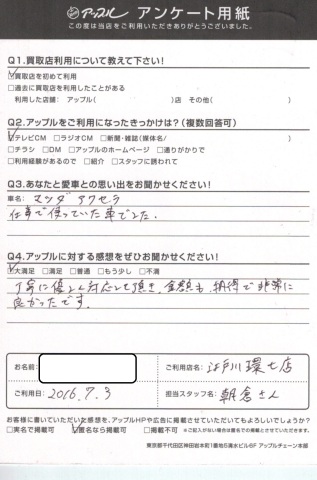 アップル アンケート用紙
この度は当店をご利用いただきありがとうございました。
Q1.買取店利用について教えて下さい!
☑買取店を初めて利用
□過去に買取店を利用したことがある
利用した店舗: アップル( )店 その他( )
Q2.アップルをご利用になったきっかけは?(複数回答可)
☑テレビCM □ラジオCM □新聞・雑誌(媒体名/ )
□チラシ □DM □アップルのホームページ □通りがかりで
□利用経験があるので □紹介 □スタッフに誘われて
Q3.あなたと愛車との思い出をお聞かせください!
車名: マツダ アクセラ
仕事で使っていた車でした.
Q4.アップルに対する感想をぜひお聞かせください!
☑大満足 □満足 □普通 □もう少し □不満
丁寧に優しく対応して頂き、金額も納得で非常に
良かったです。
お名前:
ご利用店名: 江戸川環七店
ご利用日: 2016.7.3
担当スタッフ名: 朝倉さん
お客様に書いていただいた感想を、アップルHPや広告に掲載させていただいてもよろしいでしょうか?
□実名で掲載可 ☑匿名なら掲載可 □掲載不可 ※ご記入がない場合は匿名での掲載とさせていただきます。
東京都千代田区神田岩本町1番地5清水ビル6F アップルチェーン本部